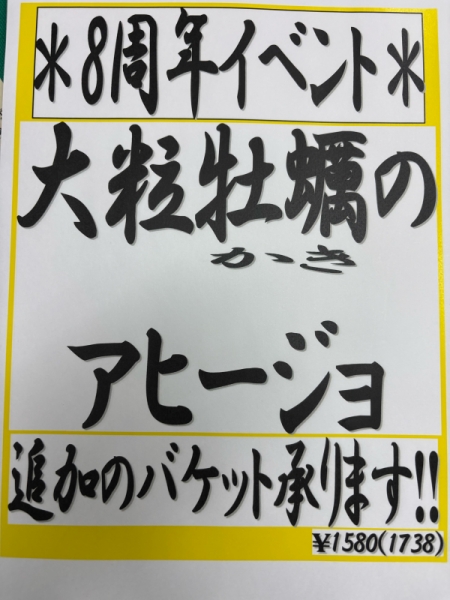 ＊8周年イベント＊
大粒牡蠣の
かき
アヒージョ
追加のバケット承ります!!
¥1580(1738)